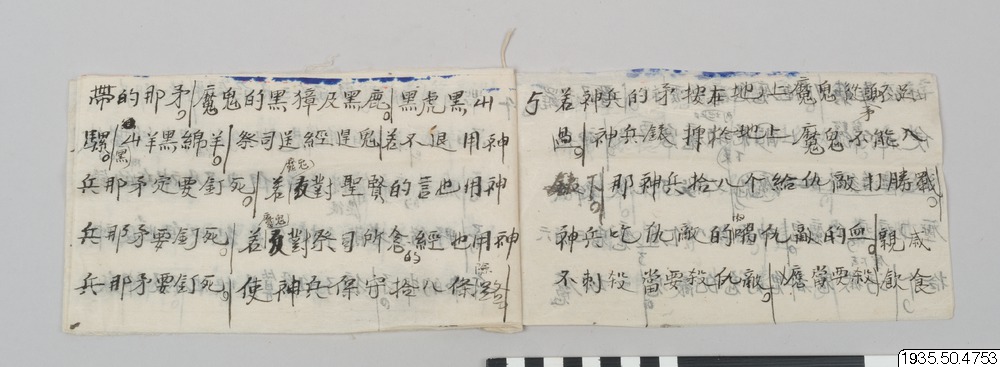 帶的那矛魔鬼的黑獐及黑鹿黑虎黑山
騾黑山羊黑綿羊祭司送經退鬼若不退用神
兵那矛定要釘死若魔鬼反對聖賢的言也用神
兵那矛要釘死若魔鬼反對祭司所念的經也用神
兵那矛要釘死使神兵保守拾八條路
5 若神兵的矛按在地上魔鬼從不過
過神兵鐵 拾地上魔鬼不能入
下那神兵拾八个給仇敵打勝戰
神兵吃仇敵的喝仇敵的血親戚
不刺殺當要殺仇敵應當要殺飲食
1935.50.4753